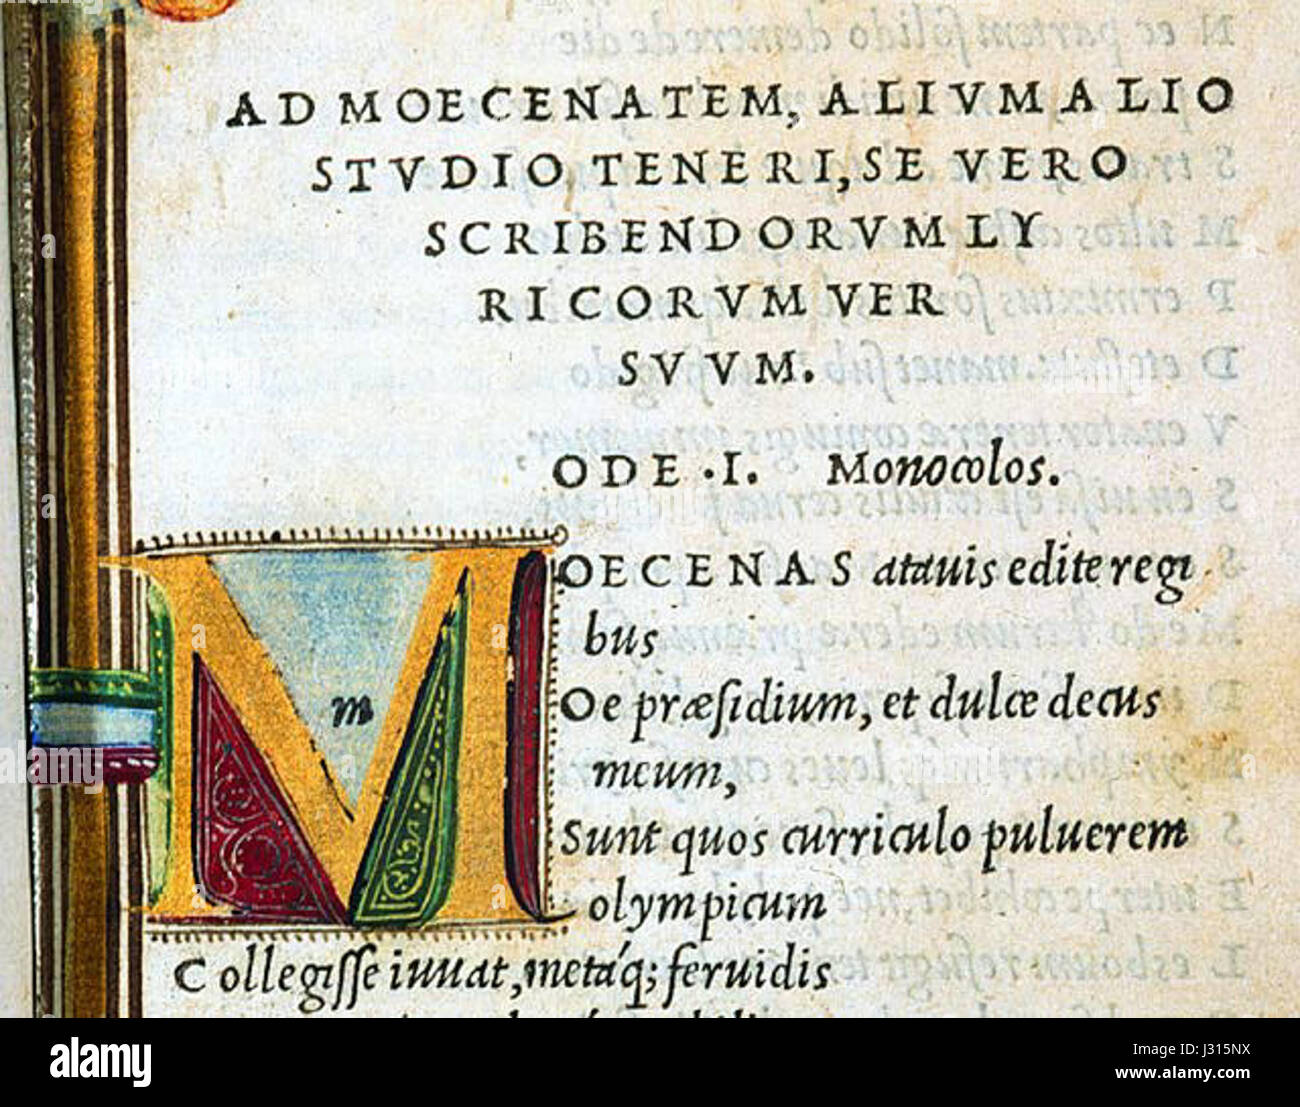 AD MOECENATEM, ALIVM ALIO
STVDIO TENERI, SE VERO
SCRIBENDORVM LY
RICORVM VER
SVVM.
ODE .I. Monocolos.
m
MOECENAS atauis edite regi
bus
Oe præſidium, et dulce decus
meum,
Sunt quos curriculo puluerem
olympicum
Collegiſſe iuuat, metáq; feruidis
alamy
J315NX
www.alamy.com